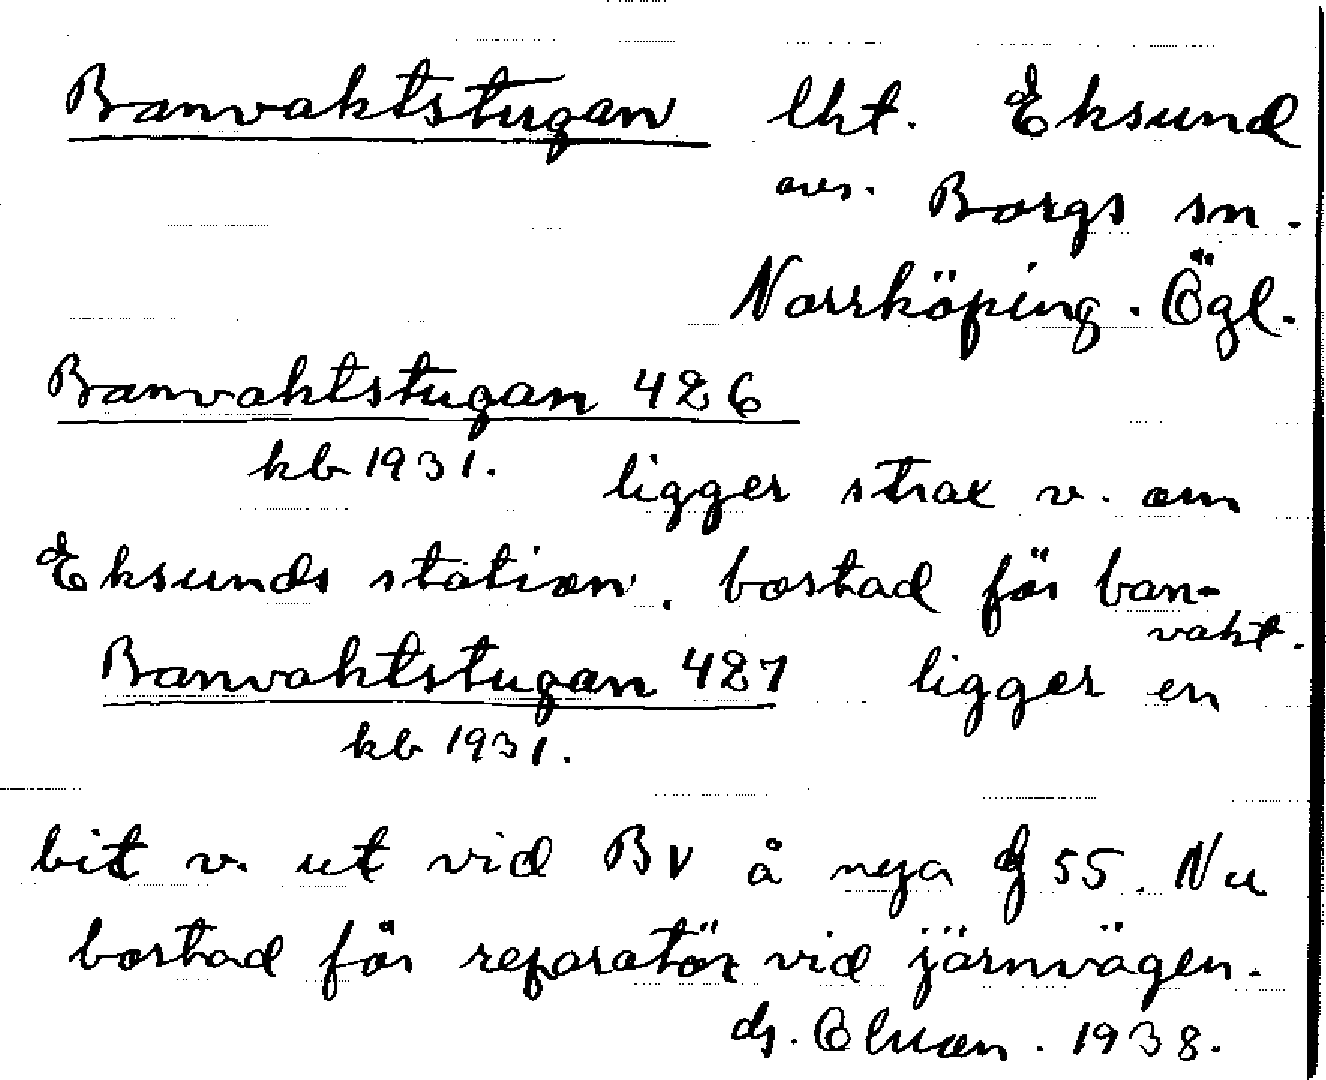 Banvaktstugan lht. Eksund
avs. Borgs sn.
Norrköping. Ögl.
Banvaktstugan 426
kb 1931. ligger strax v. om
Eksunds station. bostad för ban-
vakt.
Banvaktstugan 427 ligger en
kb 1931.
bit v. ut vid BV å nya 55. Nu
bostad för reparatör vid järnvägen.
1938.